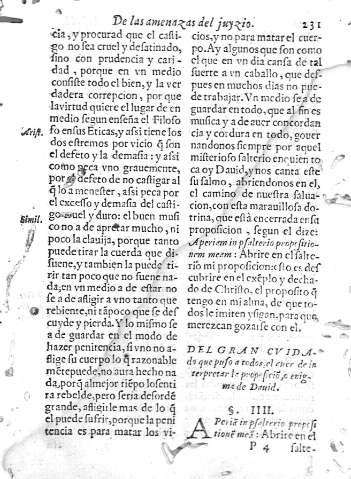 De las amenazas del juyzio. 231
cia, y procurad que el casti-
go no sea cruel y desatinado,
sino con prudencia y cari-
dad, porque en vn medio
consiste todo el bien, y la ver
dadera correpcion, por que
la virtud quiere el lugar de en
medio segun enseña el Filoso
Arist. fo en sus Eticas, y assi tiene los
dos estremos por vicio q̃ son
el defeto y la demasia: y assi
como peca vno grauemente,
por defeto de no castigar al
q̃ lo a menester, assi peca por
el excesso y demasia del casti-
Simil. go cruel y duro: el buen musi
co no a de apretar mucho, ni
poco la clauija, porque tanto
puede tirar la cuerda que di-
suene, y tambien la puede ti-
rir tan poco que no suene na-
da; en vn medio a de estar no
se a de afligir a vno tanto que
rebiente, ni tãpoco que se des
cuyde y pierda. Y lo mismo se
a de guardar en el modo de
hazer penitencia, si vno no a-
flige su cuerpo lo q̃ razonable
mẽte puede, no aura hecho na
da, porq̃ al mejor tiẽpo losenti
ra rebelde, pero seria desordẽ
grande, afligirle mas de lo q̃
el puede sufrir, porque la peni
tencia es para matar los vi-
cios, y no para matar el cuer-
po. Ay algunos que son como
el que en vn dia cansa de tal
suerte a vn caballo, que des-
pues en muchos dias no pue-
de trabajar. Vn medio se a de
guardar en todo, que al fin es
musica y a de auer concordan
cia y cordura en todo, gouer
nandonos siempre por aquel
misterioso salterio en quien to
ca oy Dauid, y nos canta este
su salmo, abriendonos en el,
el camino de nuestra salua-
cion, con esta marauillosa do-
trina, que està encerrada en su
proposicion, segun el dize:
Aperiam in psalterio propositio-
nem meam: Abrire en el salte-
rio mi proposicion: esto es des
cubrire en el exẽplo y decha-
do de Christo. el proposito q̃
tengo en mi alma, de que to-
dos le imiten y sigan, para que
merezcan gozarse con el.
DEL GRAN CVIDA-
do que puso a todos, el euer de in-
terpretar la proposiciõ, o enig-
ma de Dauid.
§. IIII.
Aperiã in psalterio proposi
tionẽ meã: Abrire en el
P 4 salte-